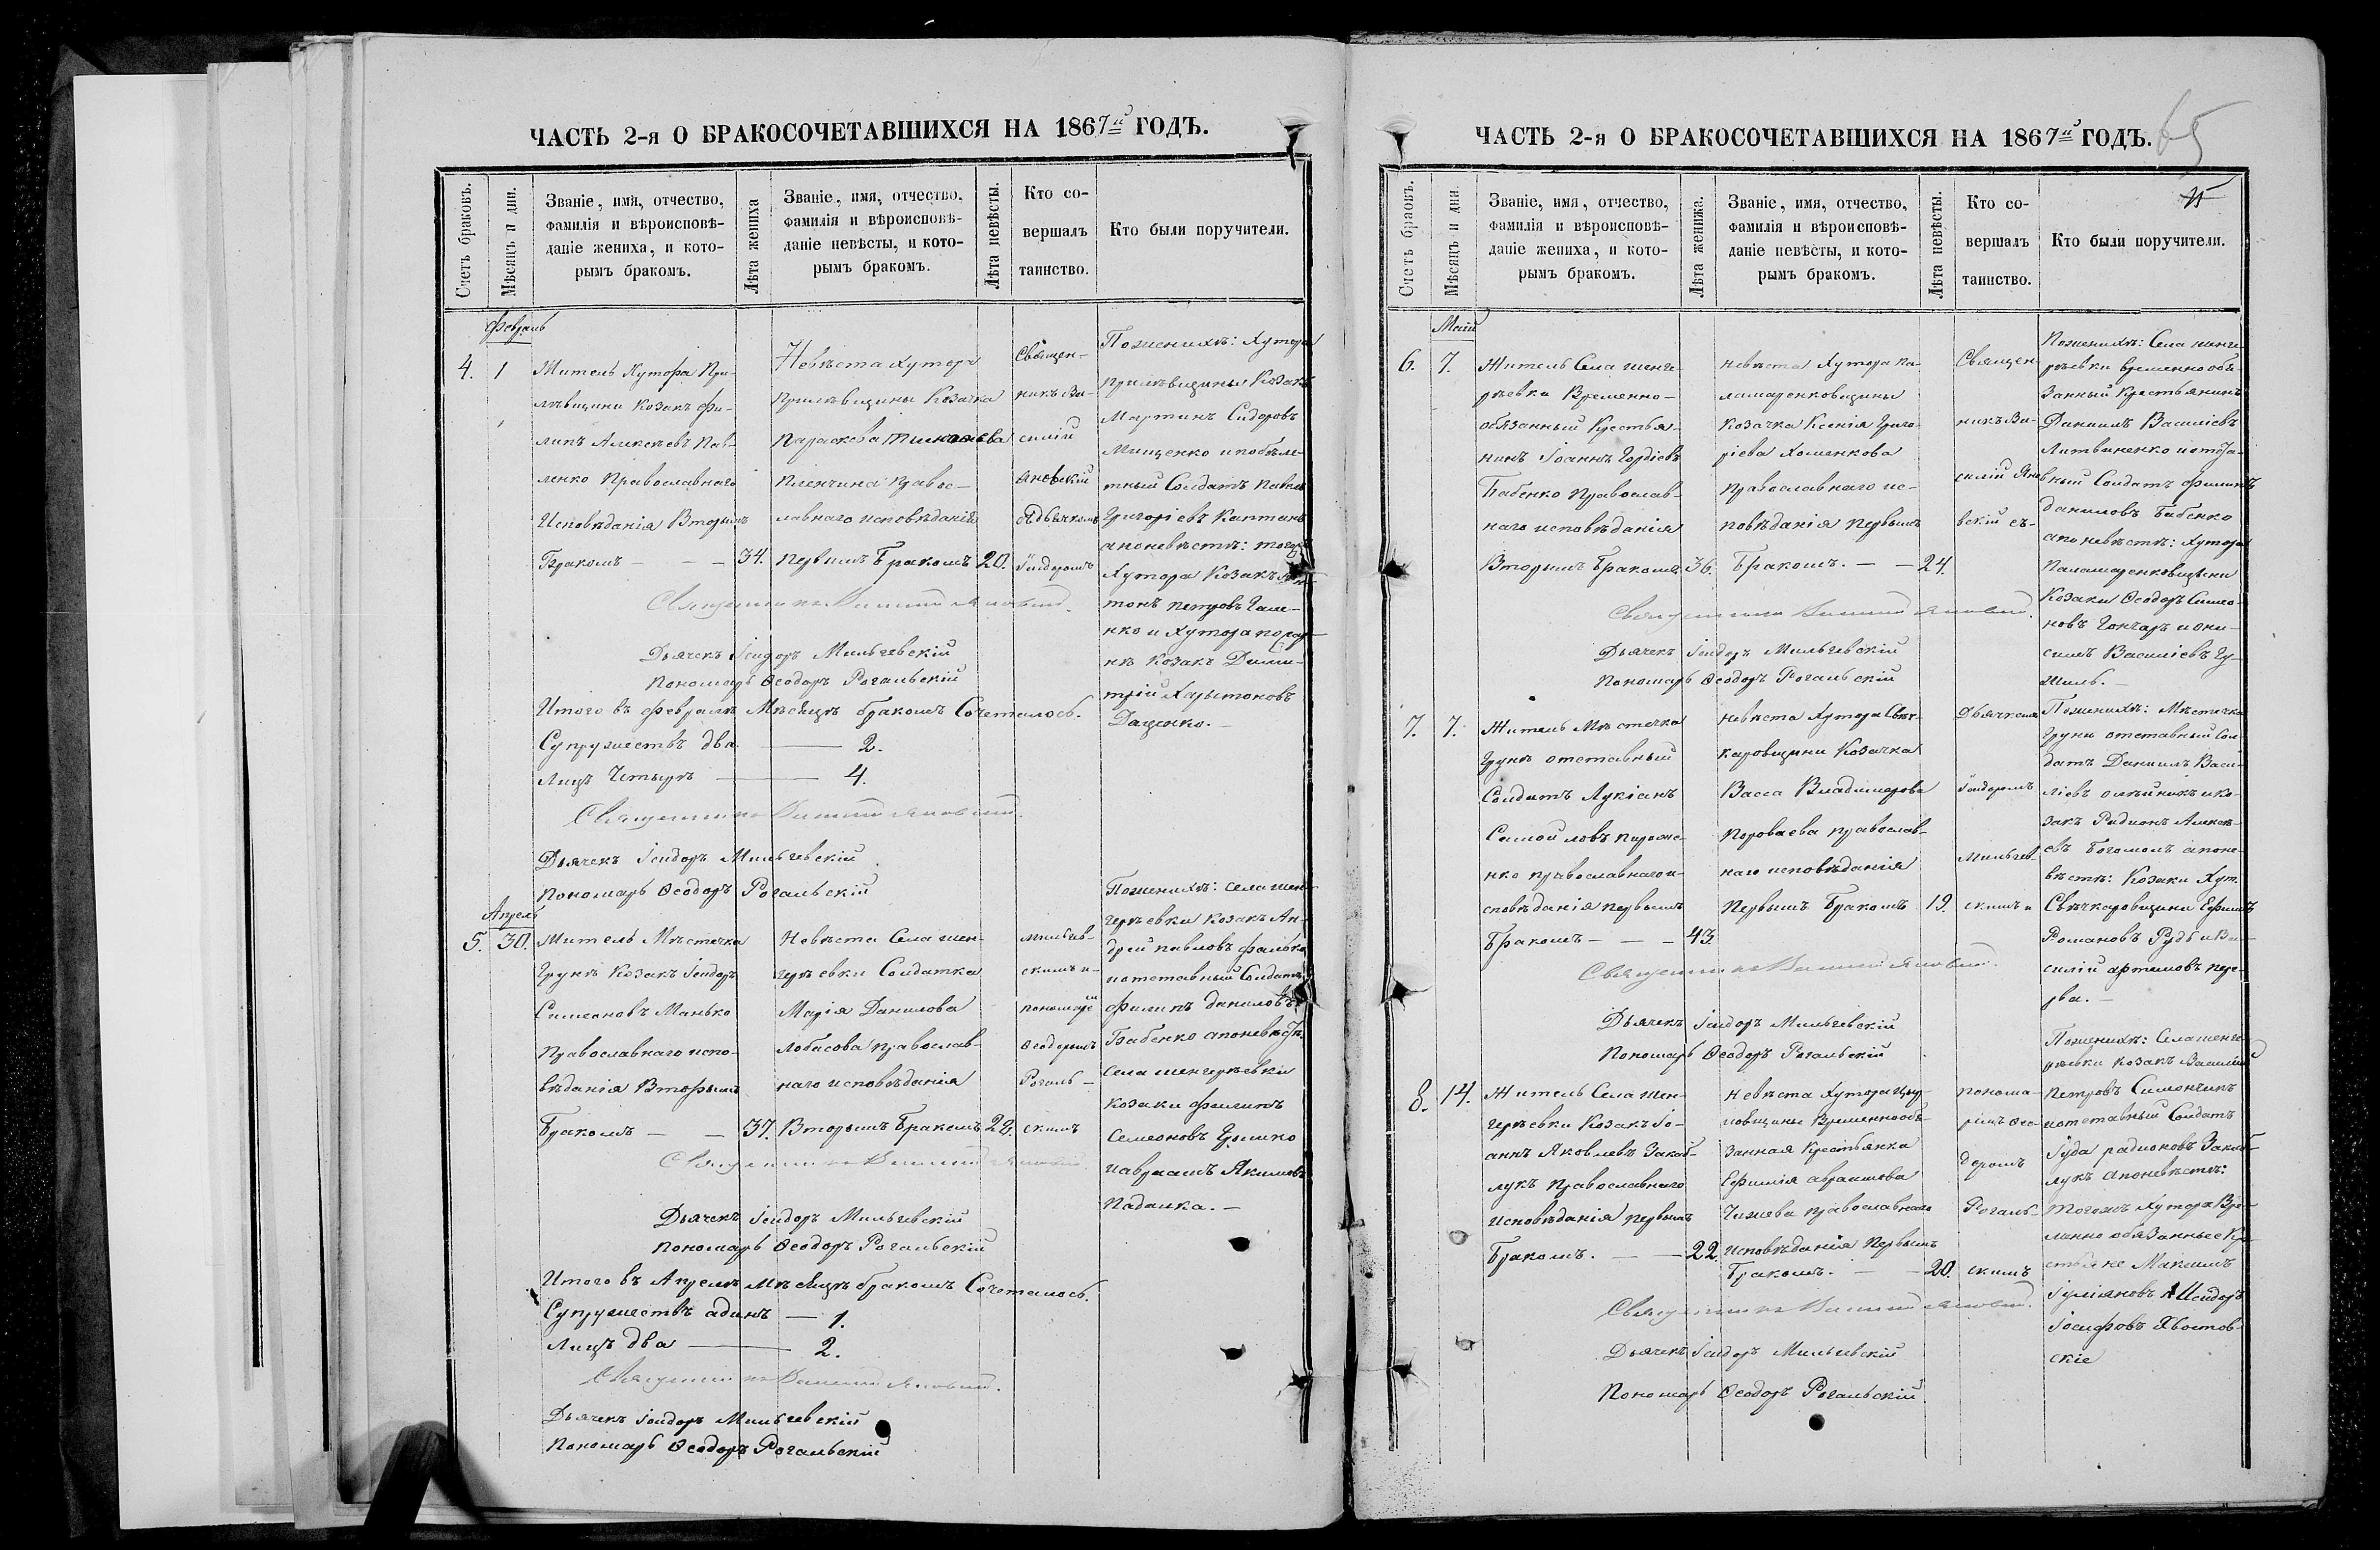 ЧАСТЬ 2-я О БРАКОСОЧЕТАВШИХСЯ НА 1867й ГОДЪ.
Счетъ браковъ.
Мѣсяцъ и дни.
Званіе, имя, отчество,
фамилія и вѣроисповѣ-
даніе жениха, и кото-
рымъ бракомъ.
Лѣта жениха
Званіе, имя, отчество,
фамилія и вѣроисповѣ-
даніе невѣсты, и кото-
рымъ бракомъ.
Лѣта невѣсты.
Кто со-
вершалъ
таинство.
Кто были поручители.
Февраль
4.
1
Житель Хутора При-
лѣвщини Козакъ Фи-
липъ Алексѣевъ Пав-
ленко Православнаго
Исповѣданія Вторымъ
Бракомъ — — —
34.
Невѣста Хутора
Прилѣвщины Козачка
Параскева
Пленчина Правос-
лавнаго исповѣданія
Первымъ Бракомъ
20.
Священ-
никъ Ва-
силій
Яновскій
Дьячкомъ
Ісидоромъ
Пожениххъ: Хутора
Прилѣвщины Козакъ
Мартинъ Сидоровъ
Мищенко
Солдатъ Павелъ
Григоріевъ Каптанъ
апоневѣстѣ: тогожъ
Хутора Козакъ Ан-
тонъ Петровъ Гале-
нко и Хутора
Козакъ Дими-
трій Харытоновъ
Даценко. —
Священникъ Василій Яновскій.
Дьячекъ Ісидоръ Мильчевскій
Пономарь Ѳеодоръ Рогальскій
Итого въ Февралѣ Мѣсяцѣ бракомъ Сочеталось.
Супружествъ два — 2.
Лицъ Четыре — 4.
Священникъ Василій Яновскій.
Дьячекъ Ісидоръ Мильчевскій
Пономарь Ѳеодоръ Рогальскій
Апрель
5.
30.
Житель Мѣстечка
Груня Козакъ Ісидоръ
Симеоновъ Манько
Православнаго испо-
вѣданія Вторымъ
Бракомъ — —
37.
Невѣста Села Мен-
герѣевки Солдатка
Марія Данилова
Лобасова Православ-
наго исповѣданія
Вторымъ Бракомъ
28.
Мильчев-
скимъ и
пономаремъ
Ѳеодоромъ
Рогаль-
скимъ
Поженихѣ: села Мен-
герѣевки Козакъ Ан-
дрей Павловъ Фалько
и отставный Солдатъ
Филипъ Даниловъ
Бабенко апоневѣстѣ:
Села Менгерѣевки
Козаки Филипъ
Семеоновъ Грынко
и Авраамъ Якимовъ
Падалка. —
Священникъ Василій Яновскій.
Дьячекъ Ісидоръ Мильчевскій
Пономарь Ѳеодоръ Рогальскій
Итого въ Апрелѣ Мѣсяцѣ бракомъ Сочеталось.
Супружествъ адинъ — 1.
Лицъ два — 2.
Священникъ Василій Яновскій.
Дьячекъ Ісидоръ Мильчевскій
Пономарь Ѳеодоръ Рогальскій
65
ЧАСТЬ 2-я О БРАКОСОЧЕТАВШИХСЯ НА 1867й ГОДЪ.
Счетъ браовъ.
Мѣсяцъ и дни.
Званіе, имя, отчество,
фамилія и вѣроисповѣ-
даніе жениха, и кото-
рымъ бракомъ.
Лѣта женижа.
Званіе, имя, отчество,
фамилія и вѣроисповѣ-
даніе невѣсты, и кото-
рымъ бракомъ.
Лѣта невѣсты.
Кто со-
вершалъ
таинство.
Кто были поручители.
Маій
6.
7.
Житель Села Менге-
рѣевки Временно-
обязанный Крестья-
нинъ Іоаннъ Гордіевъ
Бабенко Православ-
наго исповѣданія
Вторымъ Бракомъ.
36.
Невѣста Хутора Па-
ламаренковщины
Козачка Ксенія Григо-
ріева Хоменкова
Православнаго ис-
повѣданія Первымъ
Бракомъ. — —
24.
Священ-
никъ Ва-
силій Яно-
вскій съ-
Поженихѣ: Села Менге-
рѣевки временно обя-
занный Крестьянинъ
Даніилъ Василіевъ
Литвиненко и отста-
вный Солдатъ Филипъ
Даниловъ Бабенко
апоневѣстѣ: Хутора
Паламаренковщины
Козаки Ѳеодоръ Симео-
новъ Гончаръ и Они-
симъ Василіевъ Гу-
жиль. —
Священникъ Василій Яновскій.
Дьячекъ Ісидоръ Мильчевскій
Пономарь Ѳеодоръ Рогальскій
7.
7.
Житель Мѣстечка
Груня отставный
Солдатъ Лукіанъ
Самойловъ Пироже-
нко православнаго и-
сповѣданія первымъ
Бракомъ — — —
43.
Невѣста Хутора Свѣч-
каровщини Козачка
Васса Владимірова
Пороваева православ-
наго исповѣданія
Первымъ Бракомъ
19.
Дьячкомъ
Ісидоромъ
Мильчев-
скимъ и
Поженихѣ: Мѣстечка
Груня отставный Сол-
датъ Даніилъ Васи-
ліевъ Олѣйникъ и ко-
закъ Радионъ Алексѣ-
евъ Богомолъ апоне-
вѣстѣ: Козаки Хут.
Свѣчкаровщини Ефимъ
Романовъ Рудь и Ва-
силій Артемовъ Пере-
рва. —
Священникъ Василій Яновскій.
Дьячекъ Ісидоръ Мильчевскій
Пономарь Ѳеодоръ Рогальскій
8.
14.
Житель Села Мен-
герѣевки Козакъ Іо-
аннъ Яковлевъ Закаб-
лукъ Православнаго
исповѣданія первымъ
Бракомъ. — —
22.
Невѣста Хутора
Временнообя-
занная Крестьянка
Ефимія Авраамова
Чижева православнаго
исповѣданія Первымъ
Бракомъ. —
20.
понома-
ремъ Ѳео-
доромъ
Рогаль-
скимъ
Поженихѣ: Села Менге-
рѣевки Козакъ Василій
Петровъ Симончикъ
и отставный Солдатъ
Іуда Радионовъ Закаб-
лукъ апоневѣстѣ:
тогожъ Хутора Вре-
менно обязанные Кре-
стьяне Максимъ
Іуліановъ и Исидоръ
Іосифовъ Хвостов-
скіе
Священникъ Василій Яновскій.
Дьячекъ Ісидоръ Мильчевскій
Пономарь Ѳеодоръ Рогальскій